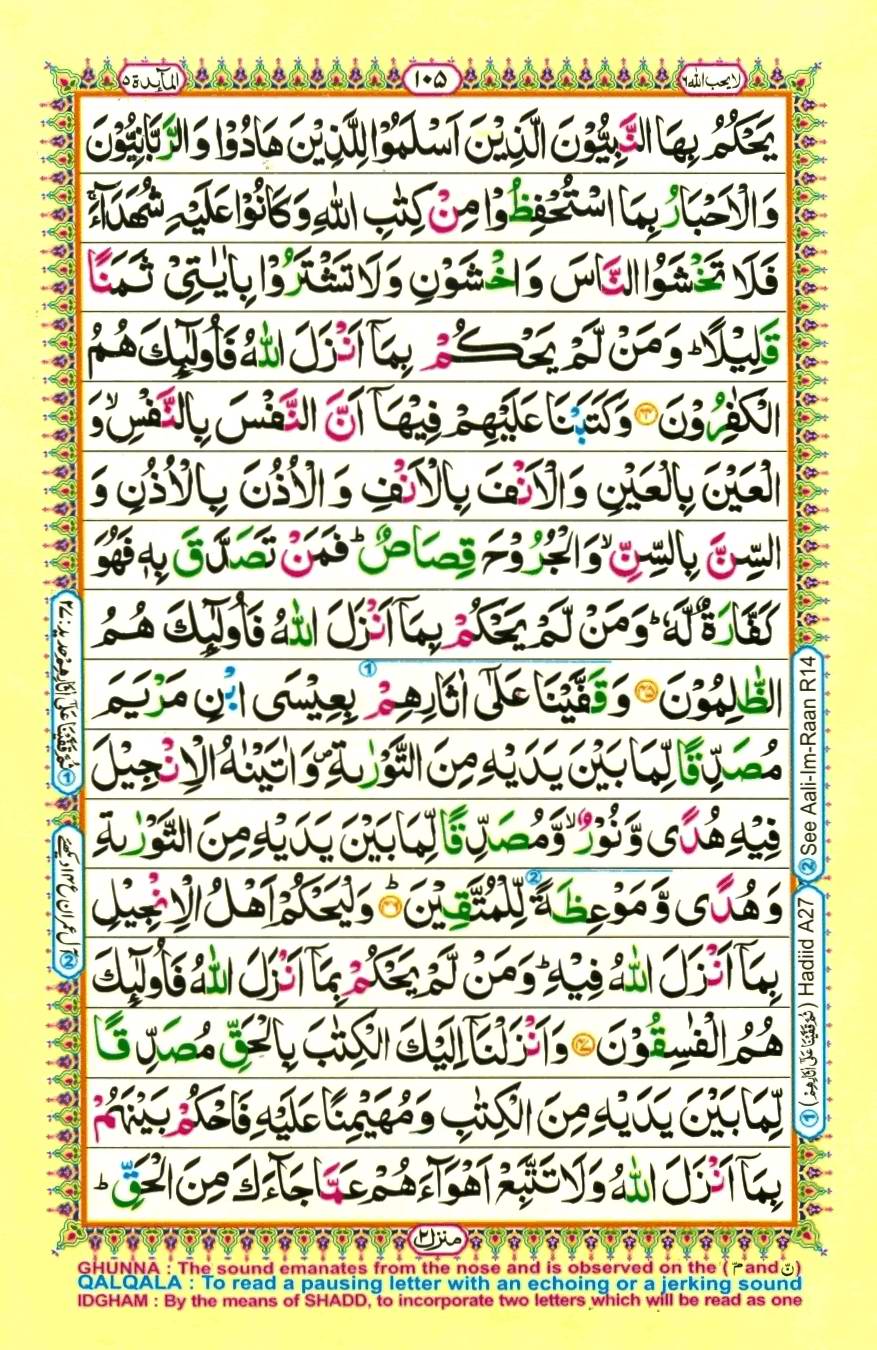 المآىِٕدة ۵
۱۰۵
لا یحب الله ۶
یَحْكُمُ بِهَا النَّبِیُّوْنَ الَّذِیْنَ اَسْلَمُوْا لِلَّذِیْنَ هَادُوْا وَ الرَّبّٰنِیُّوْنَ
وَ الْاَحْبَارُ بِمَا اسْتُحْفِظُوْا مِنْ كِتٰبِ اللّٰهِ وَ كَانُوْا عَلَیْهِ شُهَدَآءَۚ
فَلَا تَخْشَوُا النَّاسَ وَ اخْشَوْنِ وَ لَا تَشْتَرُوْا بِاٰیٰتِیْ ثَمَنًا
قَلِیْلًاؕ وَ مَنْ لَّمْ یَحْكُمْ بِمَاۤ اَنْزَلَ اللّٰهُ فَاُولٰٓىِٕكَ هُمُ
الْكٰفِرُوْنَ ۴۴ وَ كَتَبْنَا عَلَیْهِمْ فِیْهَاۤ اَنَّ النَّفْسَ بِالنَّفْسِۙ وَ
الْعَیْنَ بِالْعَیْنِ وَ الْاَنْفَ بِالْاَنْفِ وَ الْاُذُنَ بِالْاُذُنِ وَ
السِّنَّ بِالسِّنِّۙ وَ الْجُرُوْحَ قِصَاصٌؕ فَمَنْ تَصَدَّقَ بِهٖ فَهُوَ
كَفَّارَةٌ لَّهٗؕ وَ مَنْ لَّمْ یَحْكُمْ بِمَاۤ اَنْزَلَ اللّٰهُ فَاُولٰٓىِٕكَ هُمُ
الظّٰلِمُوْنَ ۴۵ وَ قَفَّیْنَا عَلٰۤى اٰثَارِهِمْ ① بِعِیْسَى ابْنِ مَرْیَمَ
مُصَدِّقًا لِّمَا بَیْنَ یَدَیْهِ مِنَ التَّوْرٰىةِ۪ وَ اٰتَیْنٰهُ الْاِنْجِیْلَ
فِیْهِ هُدًى وَّ نُوْرٌۙ وَّ مُصَدِّقًا لِّمَا بَیْنَ یَدَیْهِ مِنَ التَّوْرٰىةِ
وَ هُدًى وَّ مَوْعِظَةً ② لِّلْمُتَّقِیْنَؕ ۴۶ وَ لْیَحْكُمْ اَهْلُ الْاِنْجِیْلِ
بِمَاۤ اَنْزَلَ اللّٰهُ فِیْهِؕ وَ مَنْ لَّمْ یَحْكُمْ بِمَاۤ اَنْزَلَ اللّٰهُ فَاُولٰٓىِٕكَ
هُمُ الْفٰسِقُوْنَ ۴۷ وَ اَنْزَلْنَاۤ اِلَیْكَ الْكِتٰبَ بِالْحَقِّ مُصَدِّقًا
لِّمَا بَیْنَ یَدَیْهِ مِنَ الْكِتٰبِ وَ مُهَیْمِنًا عَلَیْهِ فَاحْكُمْ بَیْنَهُمْ
بِمَاۤ اَنْزَلَ اللّٰهُ وَ لَا تَتَّبِعْ اَهْوَآءَهُمْ عَمَّا جَآءَكَ مِنَ الْحَقِّؕ
① ثم قفینا علی اثارهم حدید: ۲۷
② آل عمران ع ۱۴ دیکھئے
② See Aali-Im-Raan R14
① (ثم قفینا علی اثارهم) Hadiid A27
منزل ۲
GHUNNA : The sound emanates from the nose and is observed on the (مّ and نّ)
QALQALA : To read a pausing letter with an echoing or a jerking sound
IDGHAM : By the means of SHADD, to incorporate two letters which will be read as one